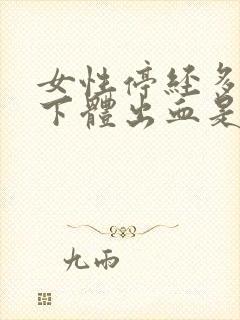 女性停经多
下體出血是
九雨